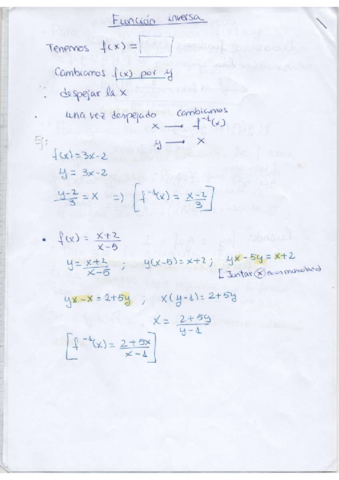 Función inversa
Tenemos f(x) =
Cambiamos f(x) por y
despejar la x
una vez despejado cambiamos
x → f⁻¹(x)
y → x
Ej:
f(x) = 3x-2
y = 3x-2
(y-2)/3 = x ⇒ [f⁻¹(x) = (x-2)/3]
• f(x) = (x+2)/(x-5)
y = (x+2)/(x-5) ; y(x-5) = x+2 ; yx-5y = x+2
[Juntar x
yx-x = 2+5y ; x(y-1) = 2+5y
x = (2+5y)/(y-1)
[f⁻¹(x) = (2+5x)/(x-1)]